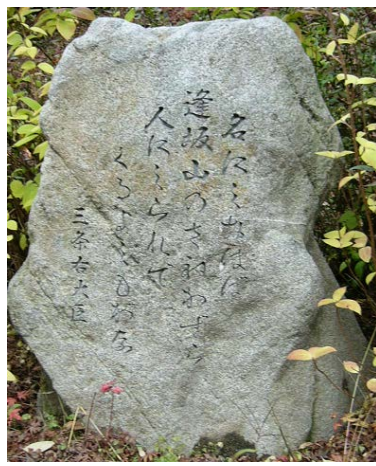 名にしおはば
逢坂山のさねかずら
人にしられで
くるよしもがな
三条右大臣